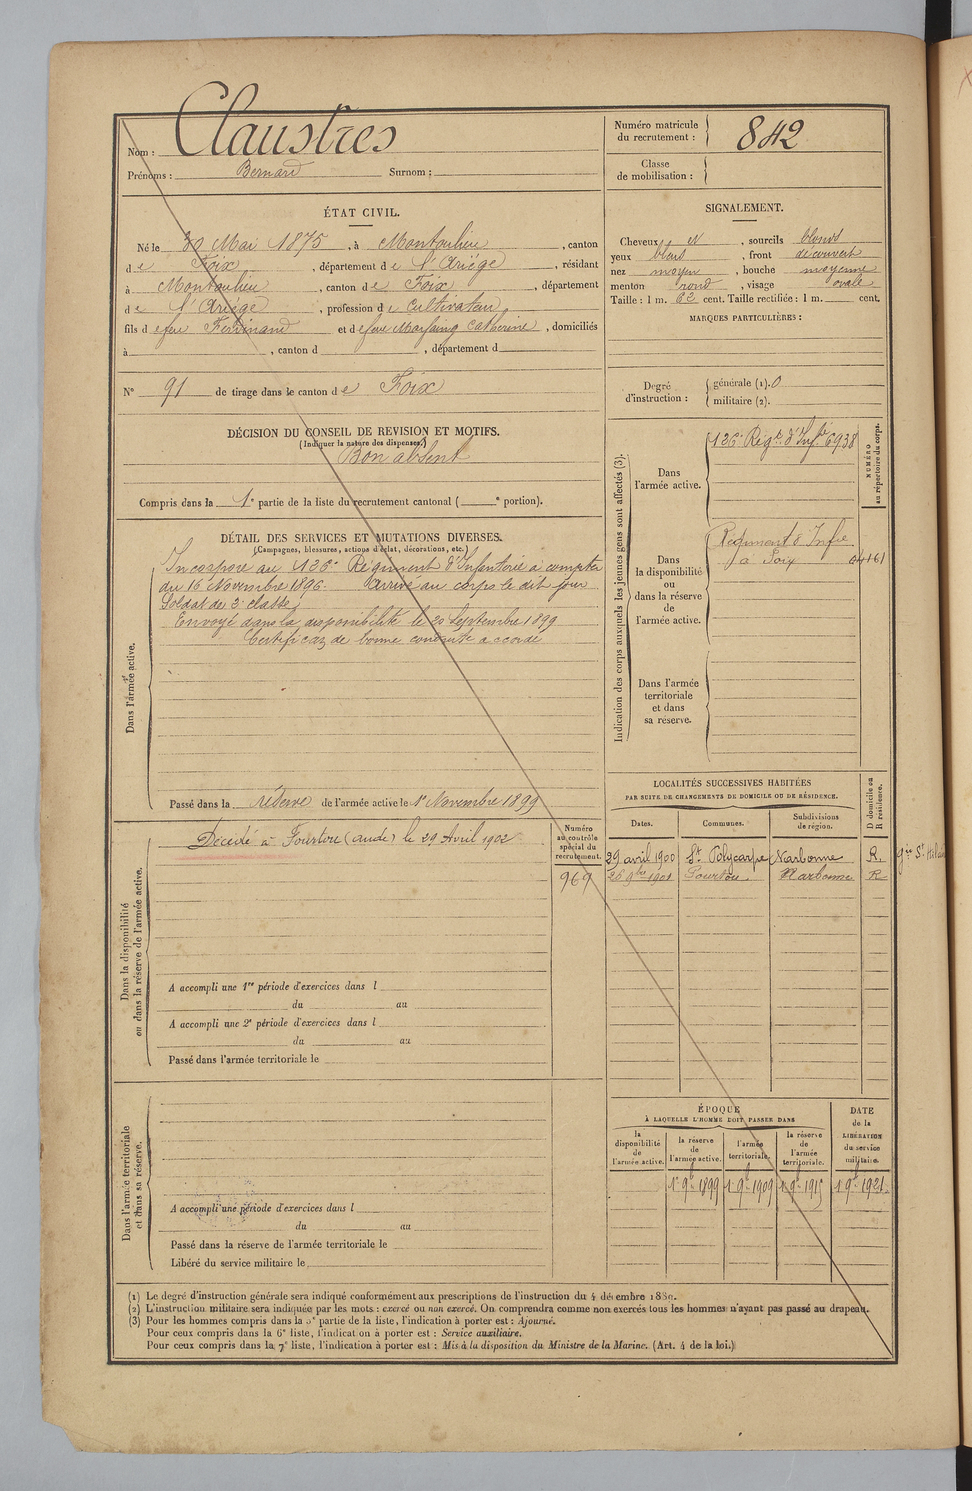 Nom : Claustres
Prénoms : Bernard Surnom :
Numéro matricule du recrutement : 842
Classe de mobilisation :
ÉTAT CIVIL.
Né le 30 Mai 1875, à Montoulieu, canton
de Foix, département de l'Ariège, résidant
à Montoulieu, canton de Foix, département
de l'Ariège, profession de Cultivateur,
fils de feu Ferdinand et de feue Marfaing Catherine, domiciliés
à , canton d , département d
SIGNALEMENT.
Cheveux et , sourcils blonds
yeux bleus , front découvert
nez moyen , bouche moyenne
menton rond , visage ovale
Taille : 1 m. 62 cent. Taille rectifiée : 1 m. cent.
MARQUES PARTICULIÈRES :
N° 91 de tirage dans le canton de Foix
Degré d'instruction : générale (1). 0
militaire (2).
DÉCISION DU CONSEIL DE REVISION ET MOTIFS.
(Indiquer la nature des dispenses.)
Bon absent
Compris dans la 1e partie de la liste du recrutement cantonal ( e portion).
DÉTAIL DES SERVICES ET MUTATIONS DIVERSES.
(Campagnes, blessures, actions d'éclat, décorations, etc.)
Dans l'armée active.
Incorporé au 126e Régiment d'Infanterie à compter
du 16 Novembre 1896. Arrivé au corps le dit jour
Soldat de 2e classe
Envoyé dans la disponibilité le 20 Septembre 1899
Certificat de bonne conduite accordé
Passé dans la réserve de l'armée active le 1er Novembre 1899
Indication des corps auxquels les jeunes gens sont affectés (3).
NUMÉRO au répertoire du corps.
Dans l'armée active.
126e Régt d'Infie 6938
Dans la disponibilité ou dans la réserve de l'armée active.
Régiment d'Infie
à Foix
Dans l'armée territoriale et dans sa réserve.
Dans la disponibilité ou dans la réserve de l'armée active.
Décédé à Fourtou (aude) le 29 Avril 1902
Numéro au contrôle spécial du recrutement.
969
A accompli une 1re période d'exercices dans l
du au
A accompli une 2e période d'exercices dans l
du au
Passé dans l'armée territoriale le
LOCALITÉS SUCCESSIVES HABITÉES
PAR SUITE DE CHANGEMENTS DE DOMICILE OU DE RÉSIDENCE.
Dates. Communes. Subdivisions de région. D domicile ou R résidence.
29 avril 1900 St Polycarpe Narbonne R.
26 9bre 1901 Fourtou Narbonne R
Dans l'armée territoriale et dans sa réserve.
A accompli une période d'exercices dans l
du au
Passé dans la réserve de l'armée territoriale le
Libéré du service militaire le
ÉPOQUE
À LAQUELLE L'HOMME DOIT PASSER DANS
la disponibilité de l'armée active. la réserve de l'armée active. l'armée territoriale. la réserve de l'armée territoriale. DATE de la LIBÉRATION du service militaire.
1er 9bre 1899 1er 9bre 1909 1er 9bre 1915 1er 9bre 1921
(1) Le degré d'instruction générale sera indiqué conformément aux prescriptions de l'instruction du 4 décembre 1889.
(2) L'instruction militaire sera indiquée par les mots : exercé ou non exercé. On comprendra comme non exercés tous les hommes n'ayant pas passé au drapeau.
(3) Pour les hommes compris dans la 5e partie de la liste, l'indication à porter est : Ajourné.
Pour ceux compris dans la 6e liste, l'indication à porter est : Service auxiliaire.
Pour ceux compris dans la 7e liste, l'indication à porter est : Mis à la disposition du Ministre de la Marine. (Art. 4 de la loi.)